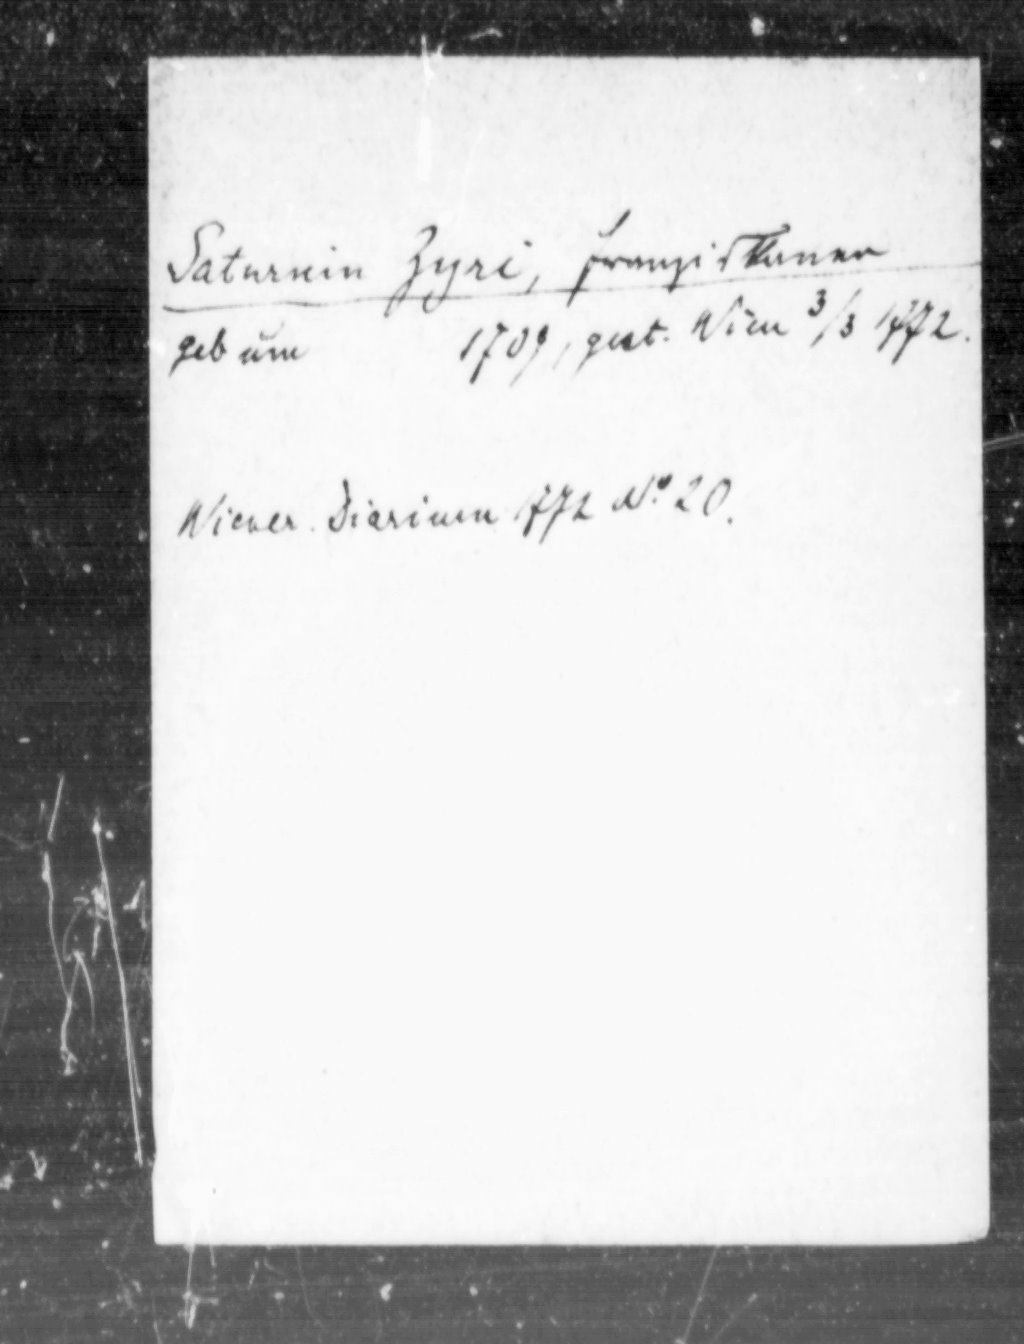 Saturnin Zyri, Franziskaner
geb um 1709, gest. Wien 3/3 1772.
Wiener Diarium 1772 No 20.